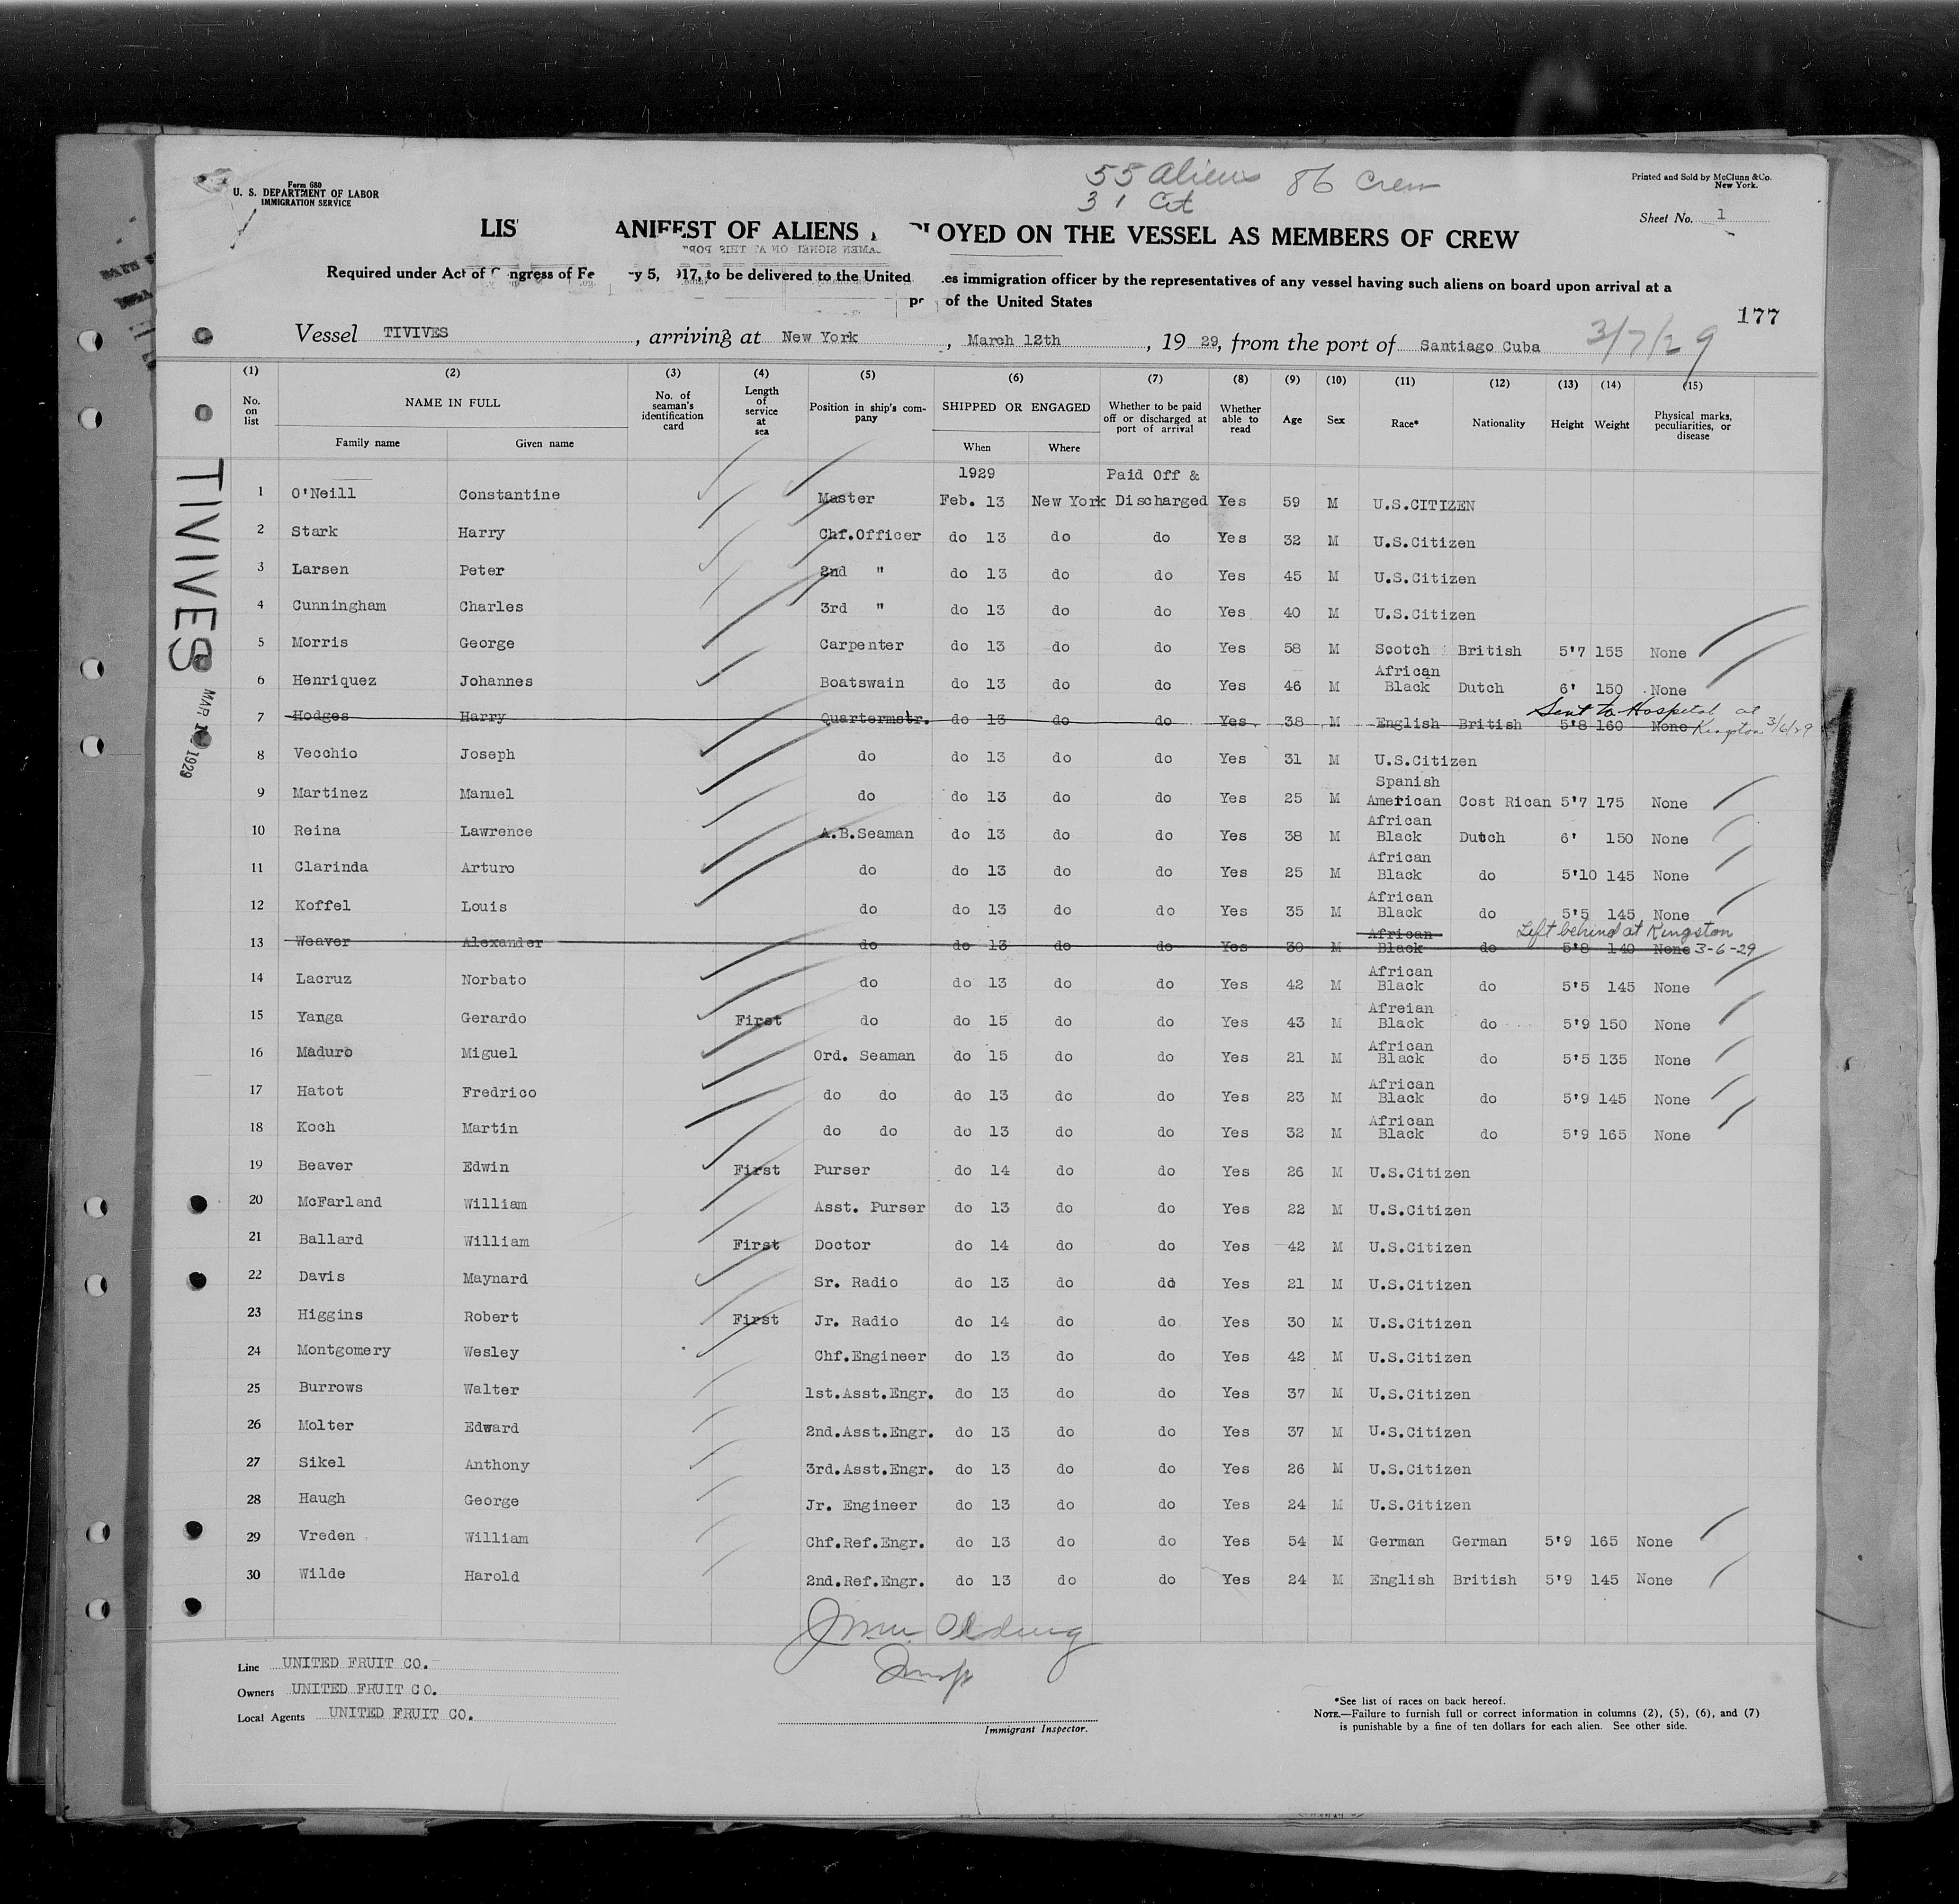 55 aliens 86 Crew
31 Cit
Form 680
U. S. DEPARTMENT OF LABOR
IMMIGRATION SERVICE
Printed and Sold by McClunn & Co.
New York.
Sheet No. 1
LIS ANIFEST OF ALIENS OYED ON THE VESSEL AS MEMBERS OF CREW
Required under Act of ngress of Fe y 5, 917, to be delivered to the United es immigration officer by the representatives of any vessel having such aliens on board upon arrival at a
of the United States
177
Vessel TIVIVES, arriving at New York, March 12th, 1929, from the port of Santiago Cuba 3/7/29
(1) (2) (3) (4) (5) (6) (7) (8) (9) (10) (11) (12) (13) (14) (15)
No. on list NAME IN FULL Family name Given name No. of seaman's identification card Length of service at sea Position in ship's company SHIPPED OR ENGAGED When Where Whether to be paid off or discharged at port of arrival Whether able to read Age Sex Race* Nationality Height Weight Physical marks, peculiarities, or disease
1929 Paid Off &
1 O'Neill Constantine Master Feb. 13 New York Discharged Yes 59 M U.S.CITIZEN
2 Stark Harry Chf.Officer do 13 do do Yes 32 M U.S.Citizen
3 Larsen Peter 2nd " do 13 do do Yes 45 M U.S.Citizen
4 Cunningham Charles 3rd " do 13 do do Yes 40 M U.S.Citizen
5 Morris George Carpenter do 13 do do Yes 58 M Scotch British 5'7 155 None
6 Henriquez Johannes Boatswain do 13 do do Yes 46 M African Black Dutch 6' 150 None
7 Hodges Harry Quartermstr. do 13 do do Yes 38 M English British 5'8 160 None Sent to Hospital at Kingston 3/6/29
8 Vecchio Joseph do do 13 do do Yes 31 M U.S.Citizen
9 Martinez Manuel do do 13 do do Yes 25 M Spanish American Cost Rican 5'7 175 None
10 Reina Lawrence A.B.Seaman do 13 do do Yes 38 M African Black Dutch 6' 150 None
11 Clarinda Arturo do do 13 do do Yes 25 M African Black do 5'10 145 None
12 Koffel Louis do do 13 do do Yes 35 M African Black do 5'5 145 None
13 Weaver Alexander do do 13 do do Yes 30 M African Black do 5'8 140 None Left behind at Kingston 3-6-29
14 Lacruz Norbato do do 13 do do Yes 42 M African Black do 5'5 145 None
15 Yanga Gerardo First do do 15 do do Yes 43 M Afreian Black do 5'9 150 None
16 Maduro Miguel Ord. Seaman do 15 do do Yes 21 M African Black do 5'5 135 None
17 Hatot Fredrico do do do 13 do do Yes 23 M African Black do 5'9 145 None
18 Koch Martin do do do 13 do do Yes 32 M African Black do 5'9 165 None
19 Beaver Edwin First Purser do 14 do do Yes 26 M U.S.Citizen
20 McFarland William Asst. Purser do 13 do do Yes 22 M U.S.Citizen
21 Ballard William First Doctor do 14 do do Yes 42 M U.S.Citizen
22 Davis Maynard Sr. Radio do 13 do do Yes 21 M U.S.Citizen
23 Higgins Robert First Jr. Radio do 14 do do Yes 30 M U.S.Citizen
24 Montgomery Wesley Chf.Engineer do 13 do do Yes 42 M U.S.Citizen
25 Burrows Walter 1st.Asst.Engr. do 13 do do Yes 37 M U.S.Citizen
26 Molter Edward 2nd.Asst.Engr. do 13 do do Yes 37 M U.S.Citizen
27 Sikel Anthony 3rd.Asst.Engr. do 13 do do Yes 26 M U.S.Citizen
28 Haugh George Jr. Engineer do 13 do do Yes 24 M U.S.Citizen
29 Vreden William Chf.Ref.Engr. do 13 do do Yes 54 M German German 5'9 165 None
30 Wilde Harold 2nd.Ref.Engr. do 13 do do Yes 24 M English British 5'9 145 None
TIVIVES
MAR 1929
Line UNITED FRUIT CO.
Owners UNITED FRUIT CO.
Local Agents UNITED FRUIT CO.
Insp
Immigrant Inspector.
*See list of races on back hereof.
NOTE.—Failure to furnish full or correct information in columns (2), (5), (6), and (7)
is punishable by a fine of ten dollars for each alien. See other side.